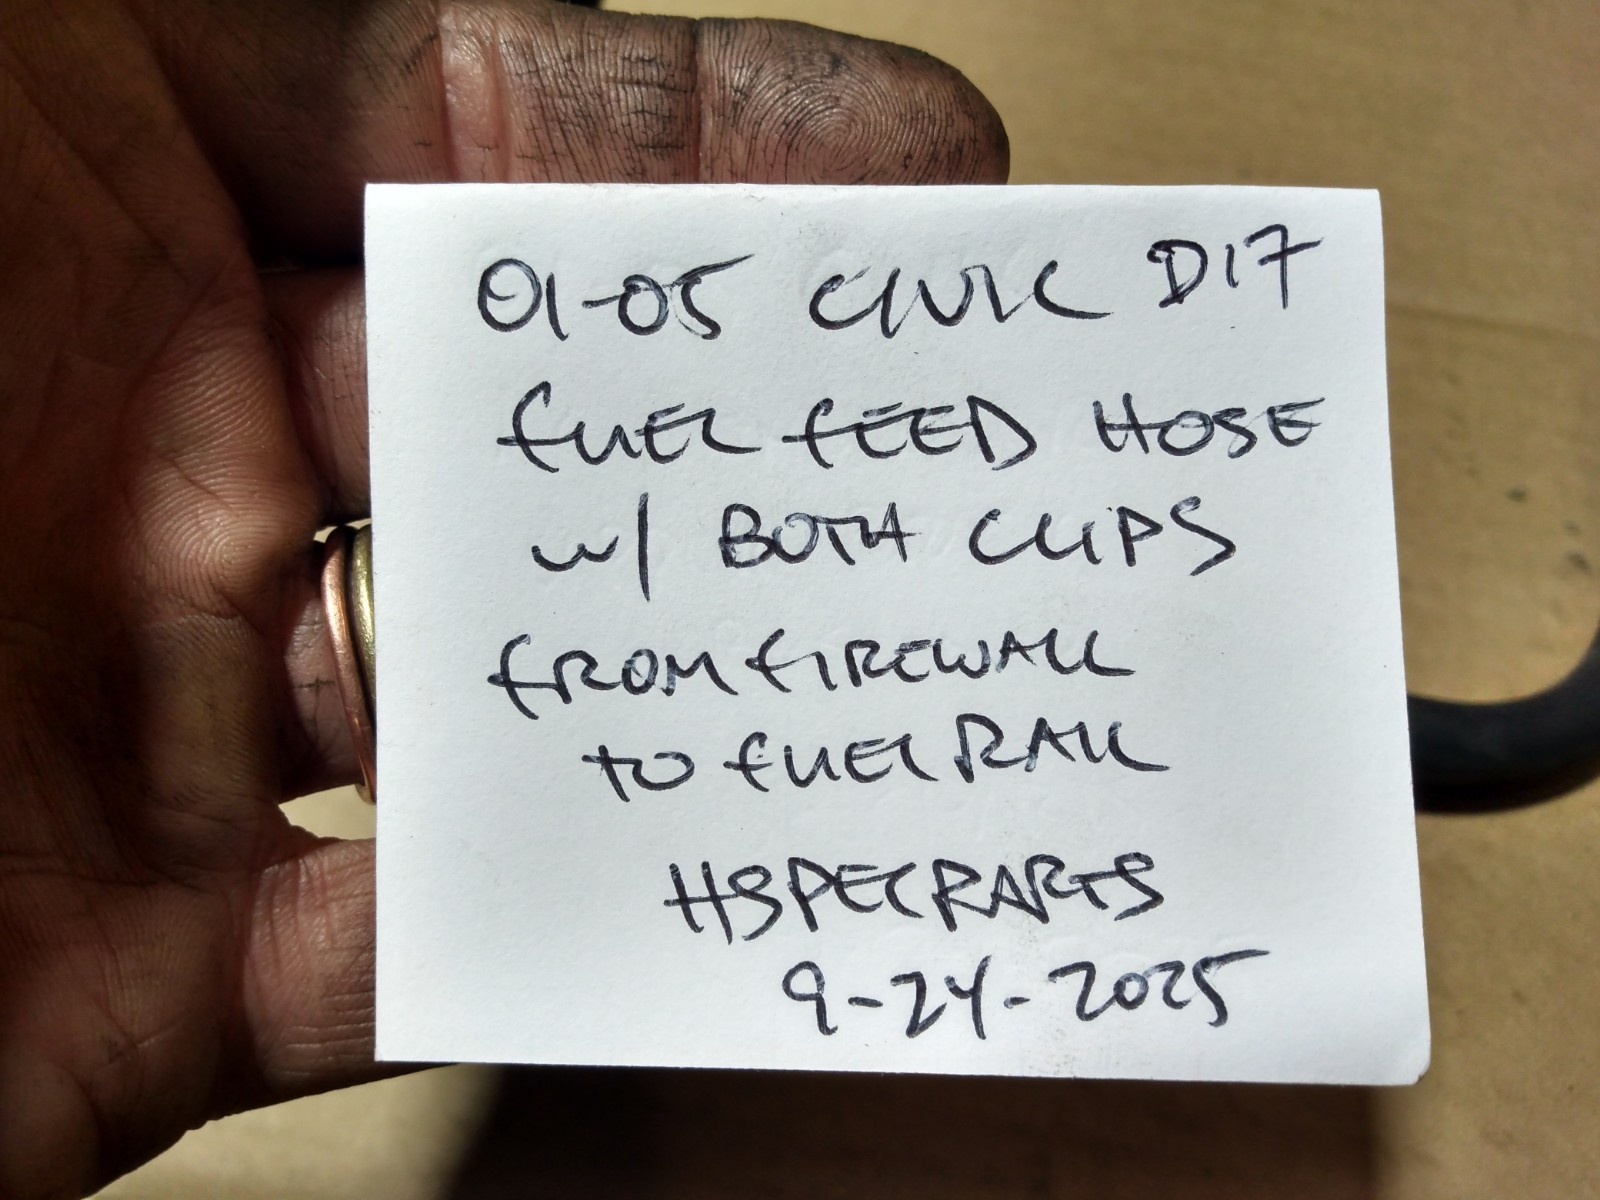 01-05 CIVIC D17
FUEL FEED HOSE
W/ BOTH CLIPS
FROM FIREWALL
TO FUEL RAIL
HSPECPARTS
9-24-2025